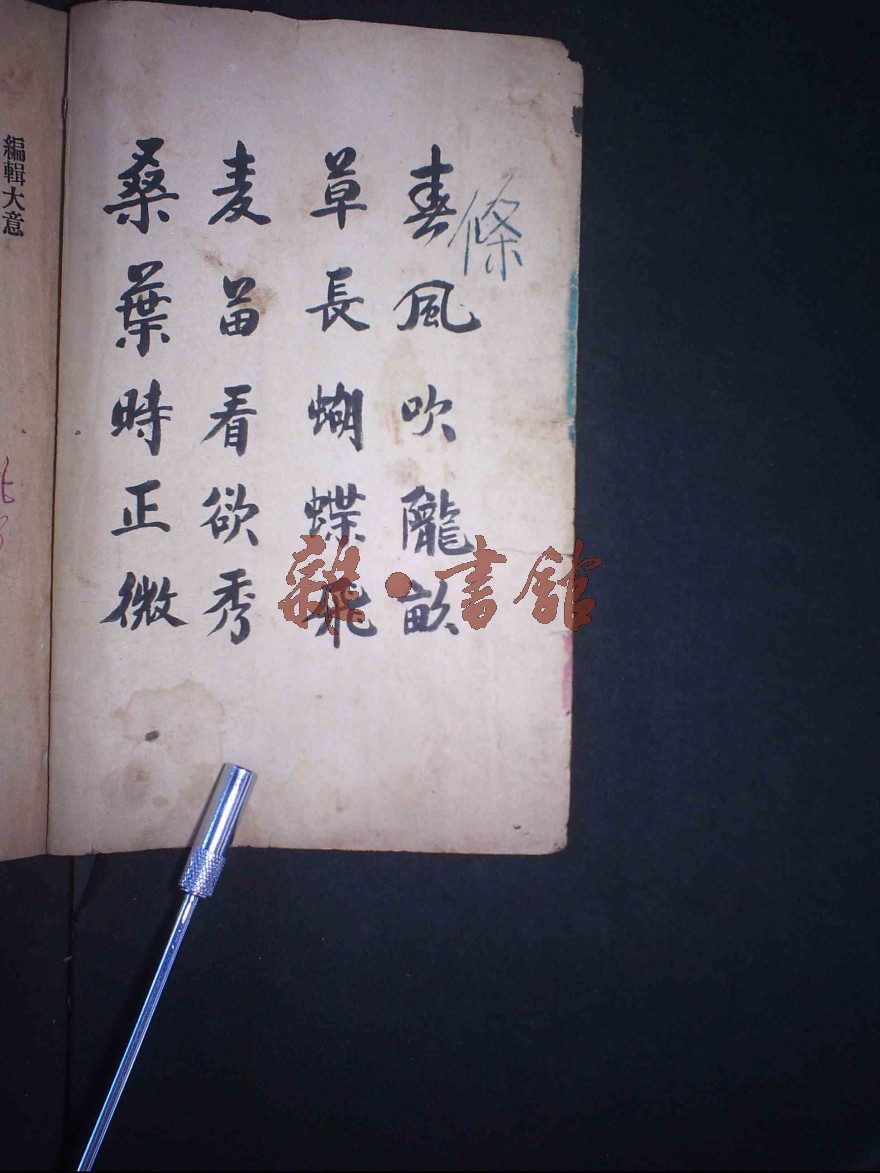 條
春風吹隴畝
草長蝴蝶飛
麦苗看欲秀
桑葉時正微
編輯大意
雜·書舘